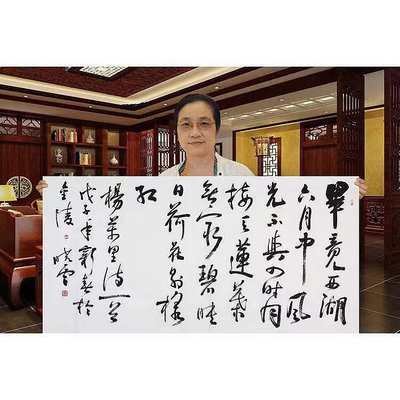 畢竟西湖
六月中風
光不與四時同
接天蓮葉
無窮碧映
日荷花別樣
紅
楊萬里詩一首
戊子年新春於
金陵 曉雲